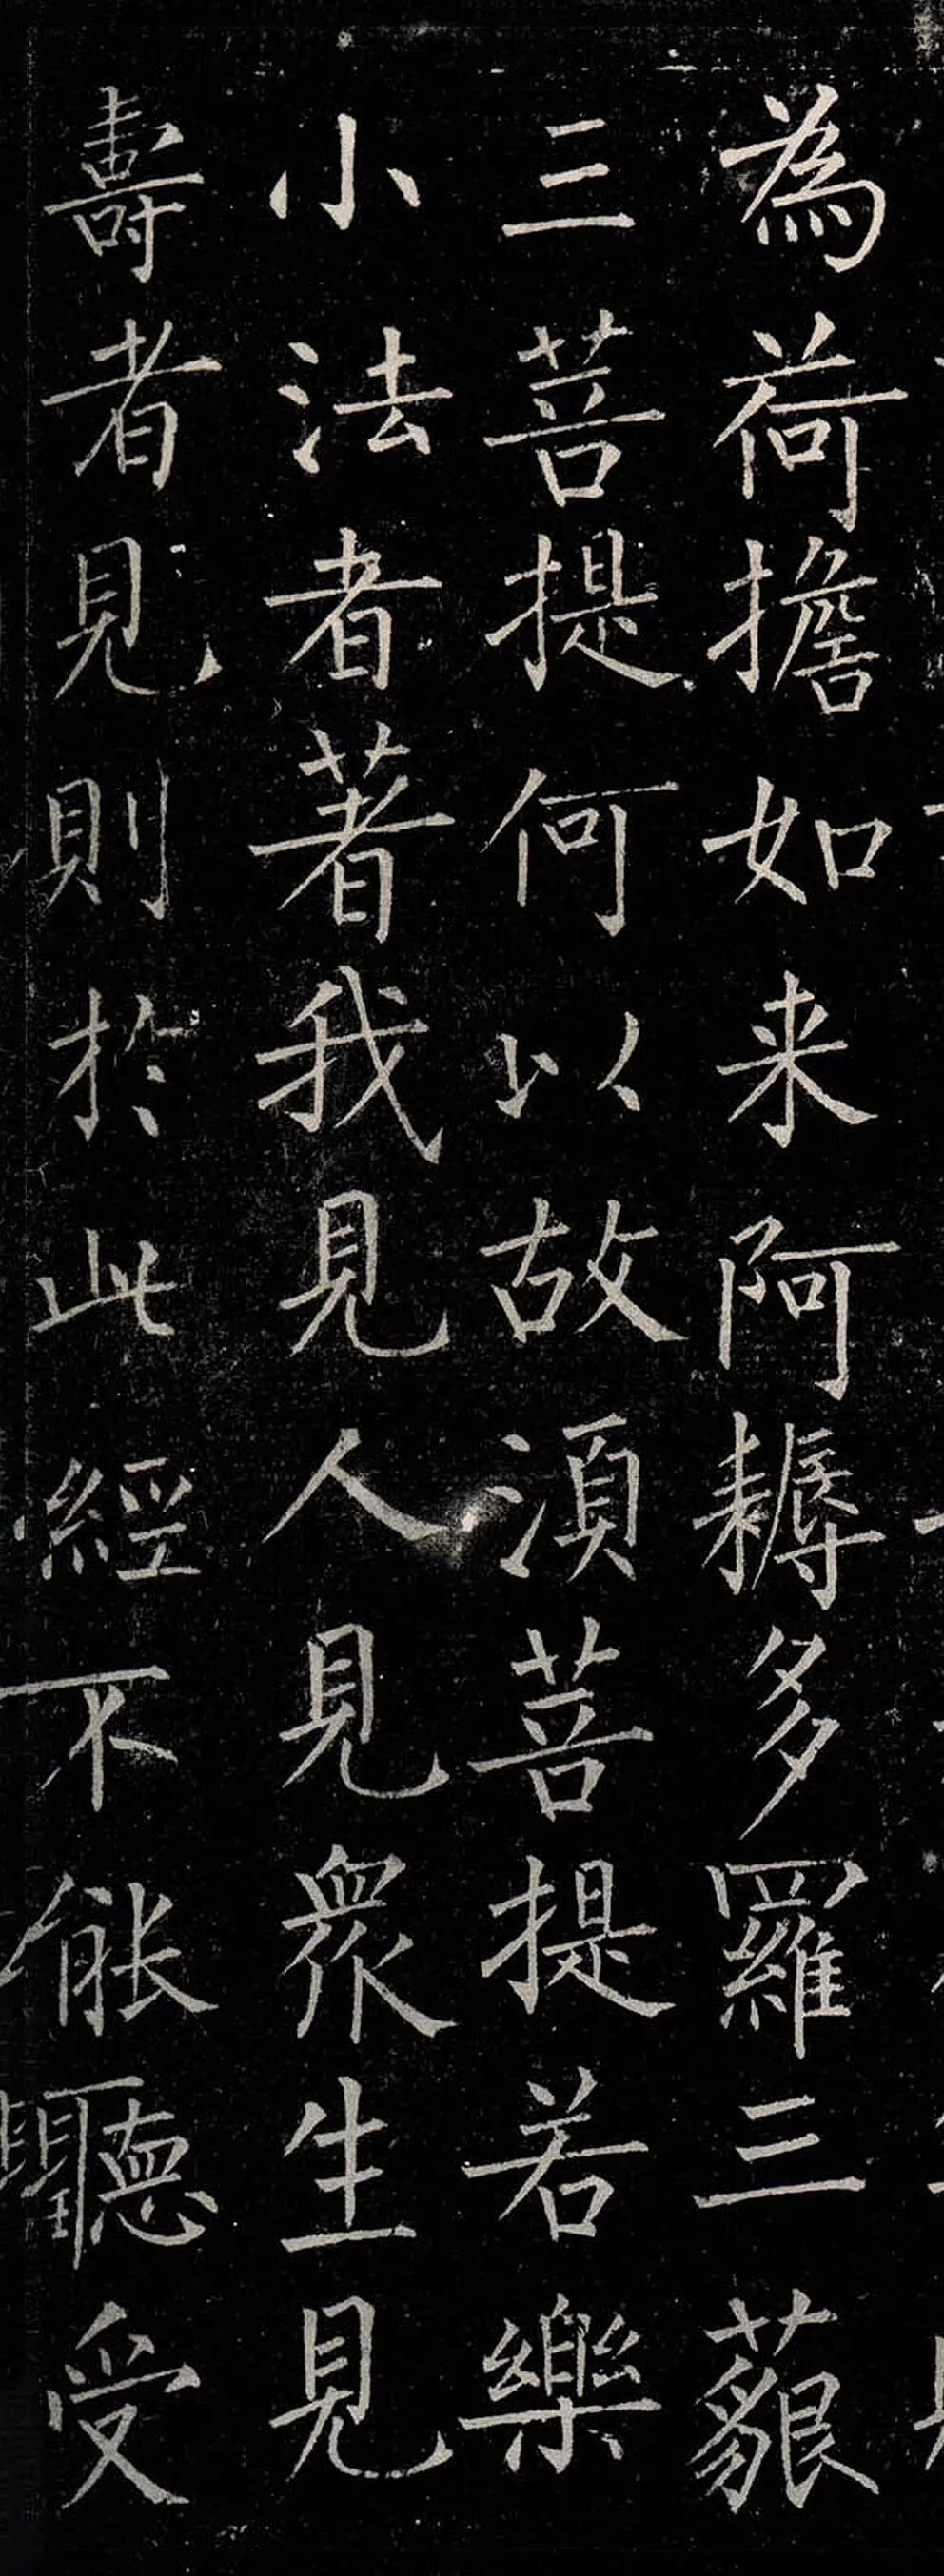 為荷擔如来阿耨多羅三藐
三菩提何以故湏菩提若樂
小法者著我見人見眾生見
壽者見則於此經不能聽受